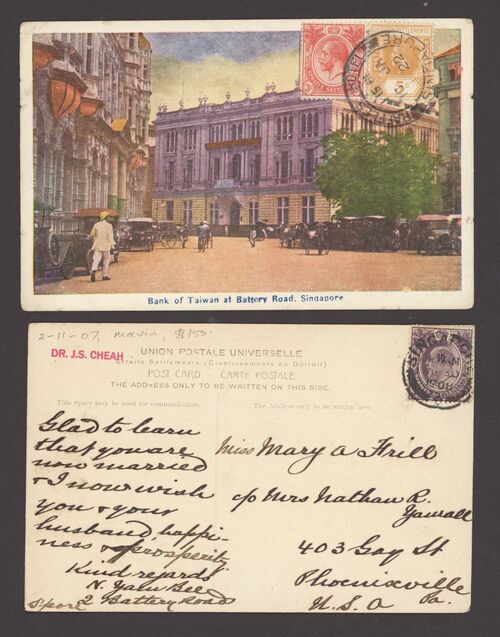 Bank of Taiwan at Battery Road, Singapore
2-11-07, mavin, $150-
DR. J.S. CHEAH
UNION POSTALE UNIVERSELLE
Straits Settlements (Etablissements du Detroit)
POST CARD - CARTE POSTALE
THE ADDRESS ONLY TO BE WRITTEN ON THIS SIDE.
This Space may be used for communication
The Address only to be written here
SINGAPO
Glad to learn
that you are
now married
& I now wish
you & your
husband happi-
ness & prosperity.
Kind regards
N. Yalu Bee
2 Battery Road
S'pore
Miss Mary A Frill
c/o Mrs Nathan R.
Yawall
403 Gay St
Phoenixville
Pa.
U.S.A